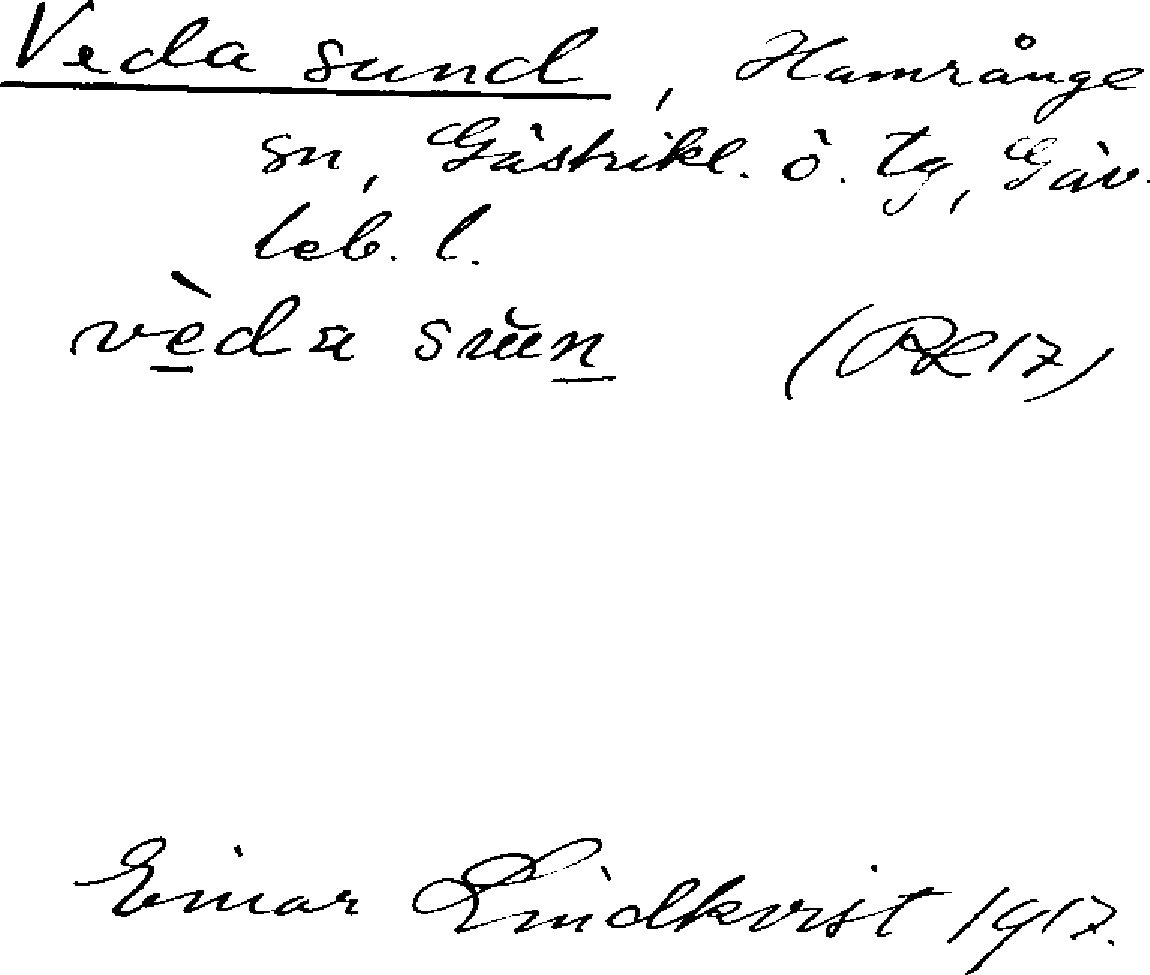 Veda sund, Hamrånge
sn, Gästrikl. ö. tg, Gäv.
leb. l.
vèda sun (RL 17)
Einar Lindkvist 1917.